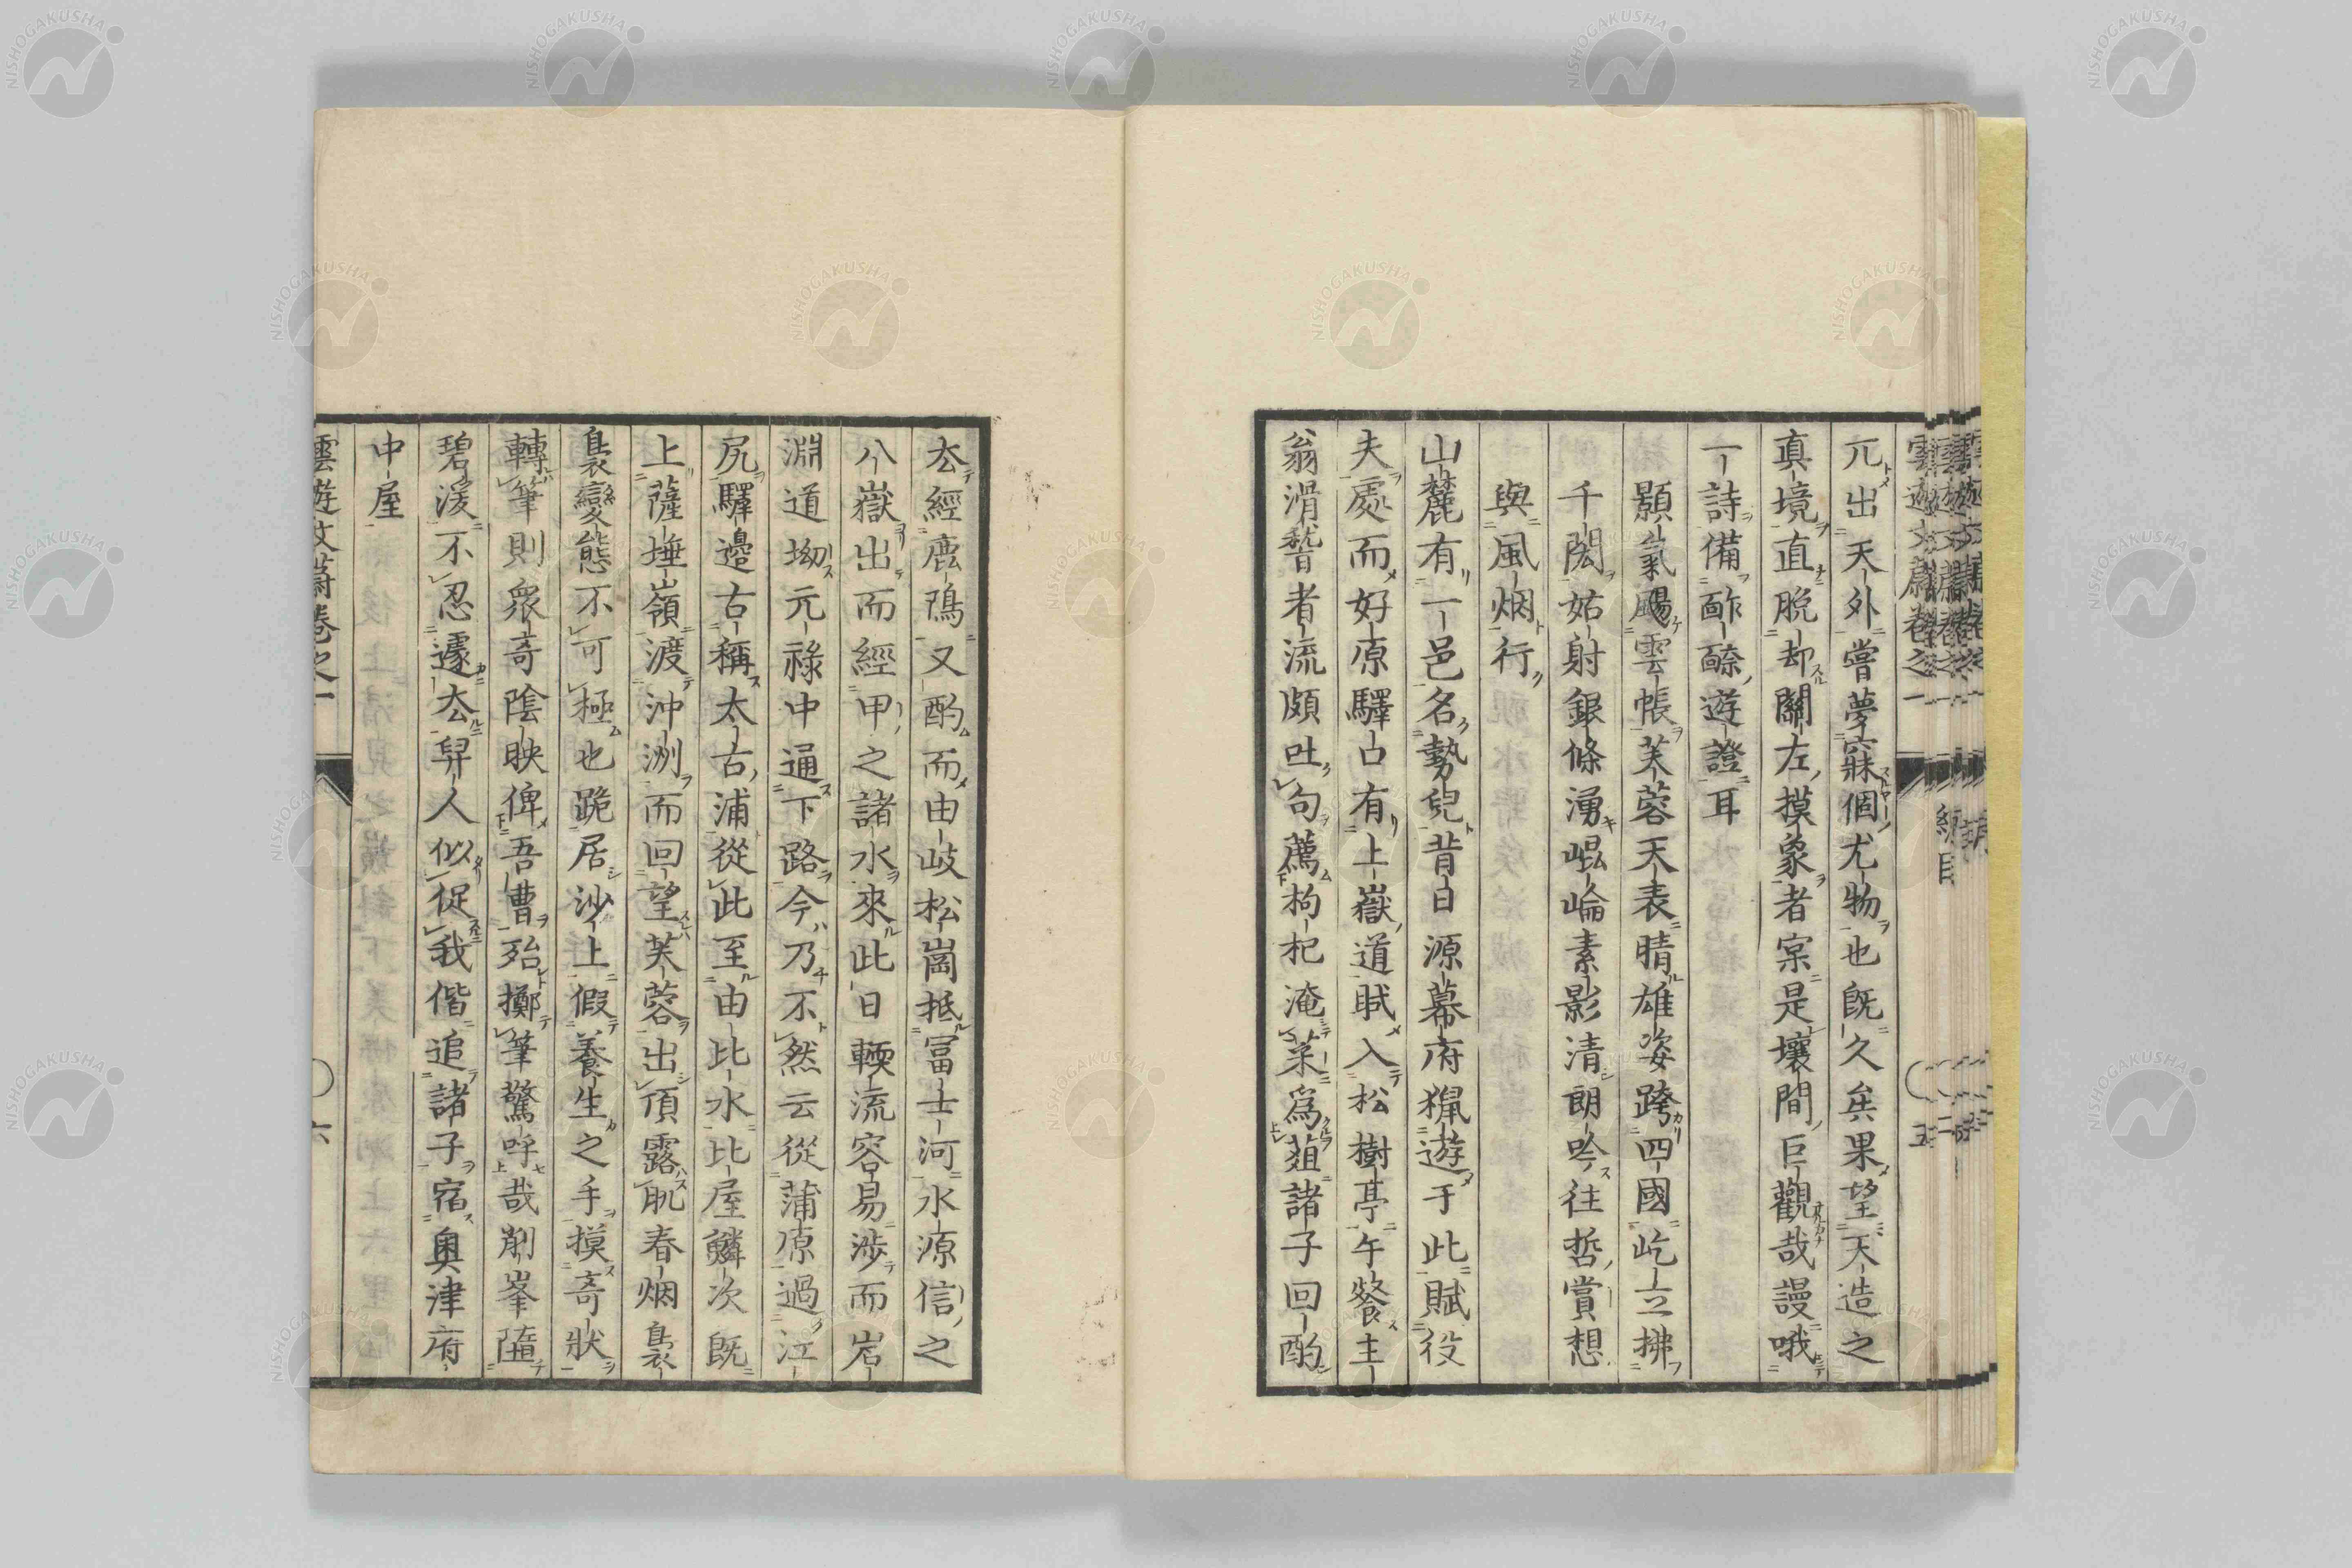 兀出天外嘗夢寐個尤物也既久矣果望天造之
真境直脫却關左摸象者宲是壤間巨觀哉謾哦
一詩備酢醦遊證耳
顥氣颺雲帳芙蓉天表晴雄姿跨四國屹立拂
千閎姑射銀條湧崐崘素影清朗吟往哲賞想
與風烟行
山麓有一邑名勢兒昔日源幕府猟遊于此賦役
夫處而好原驛口有上嶽道貥入松樹亭午餐主
翁滑稽者流頗吐句薦枸杞淹菜為葅諸子回酌
厺經鹿鴔又酌而由岐松崗抵冨士河水源信之
八嶽出而經甲之諸水來此日輭流容易涉而岩
淵道坳元祿中通下路今乃不然云從蒲原過江
尻驛邉古稱太古浦從此至由比水比屋鱗次既
上薩埵嶺渡沖洲而回望芙蓉出頂露肌春烟裊
裊變態不可極也跪居沙上假養生之手摸奇狀
轉筆則衆奇陰映俾吾曹殆擲筆驚呼哉削峯隨
碧湲不忍遽厺舁人似促我偕追諸子宿奥津府
中屋
雲遊文蔚卷之一
六
雲遊文蔚卷之一
五
NISHOGAKUSHA